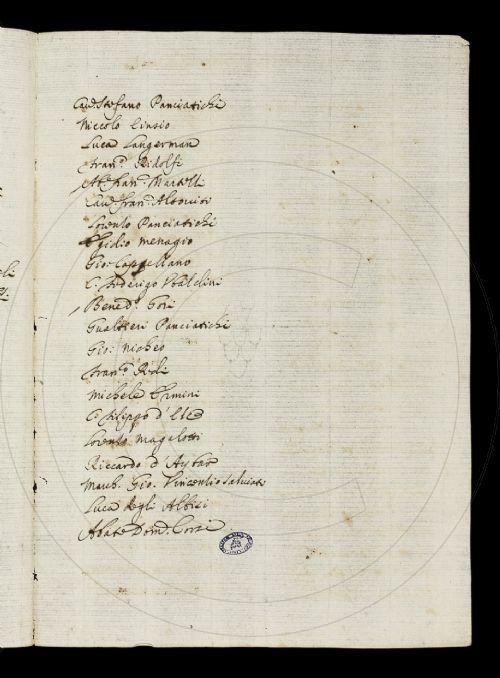 Cav. Stefano Panciatichi
Niccolo Einsio
Luca Langerman
Fran.o Ridolfi
Ab. Fran.o Martelli
Cav. Fran.o Altoviti
Lorenzo Panciatichi
Egidio Menagio
Gio: Cappellano
C. Federigo Vbaldini
Bened.o Gori
Gualtieri Panciatichi
Gio: Micheo
Fran.o Redi
Michele Ermini
C. Filippo d'Elce
Lorenzo Magalotti
Riccardo d'
March. Gio: Vincentio Salviati
Luca degli Albizi
Abate Dom.o Corsi